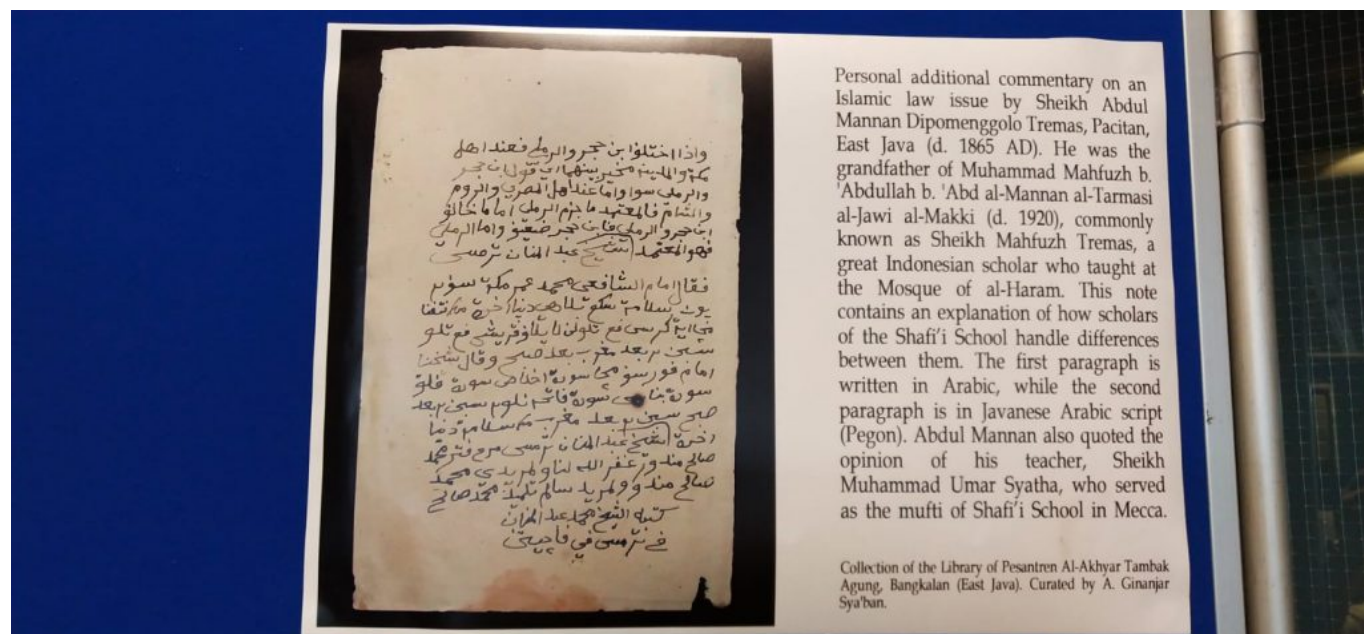 واذا اختلف ابن حجر والرملي فعند اهل
مكة والمدينة مخير بينهما اي قول ابن حجر
والرملي سوا واما عند اهل المصري والروم
والشام فالمعتمد ما جزم الرملي اما ما خالف
ابن حجر والرملي فابن حجر ضعيف واما الرملي
فهو المعتمد الشيخ عبد المنان ترمسي
فقال امام الشافعي محمد عمر مكة
سلامة دنيا اخرة
اية كرسي
بعد مغرب بعد صبح وقال شيخنا
امام سورة اخلاص سورة فلق
سورة سورة فاتحة بعد
صبح بعد مغرب سلامة دنيا
اخرة الشيخ عبد المنان ترمسي
صالح غفر الله لنا محمد
صالح محمد صالح
كتبه الشيخ محمد عبد المنان
في ترمسي في فاچيتن
Personal additional commentary on an
Islamic law issue by Sheikh Abdul
Mannan Dipomenggolo Tremas, Pacitan,
East Java (d. 1865 AD). He was the
grandfather of Muhammad Mahfuzh b.
'Abdullah b. 'Abd al-Mannan al-Tarmasi
al-Jawi al-Makki (d. 1920), commonly
known as Sheikh Mahfuzh Tremas, a
great Indonesian scholar who taught at
the Mosque of al-Haram. This note
contains an explanation of how scholars
of the Shafi'i School handle differences
between them. The first paragraph is
written in Arabic, while the second
paragraph is in Javanese Arabic script
(Pegon). Abdul Mannan also quoted the
opinion of his teacher, Sheikh
Muhammad Umar Syatha, who served
as the mufti of Shafi'i School in Mecca.
Collection of the Library of Pesantren Al-Akhyar Tambak
Agung, Bangkalan (East Java). Curated by A. Ginanjar
Sya'ban.